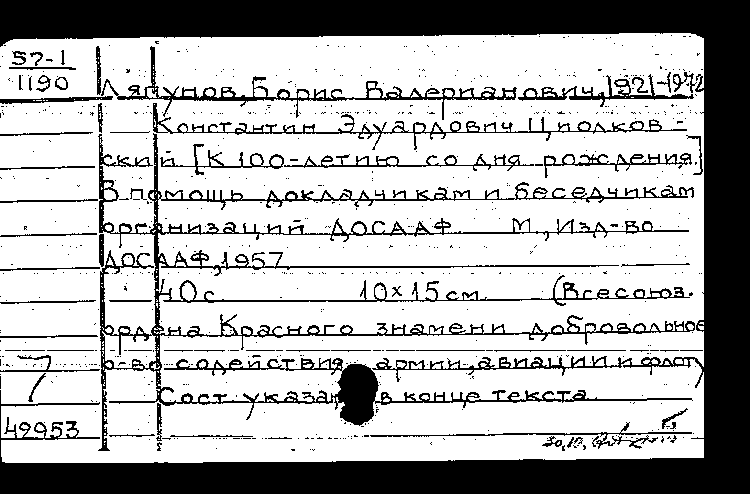 57-1
1190
Ляпунов, Борис Валерианович, 1921-1972
Константин Эдуардович Циолков-
ский [К 100-летию со дня рождения.]
В помощь докладчикам и беседчикам
организаций ДОСААФ. М., Изд-во
ДОСААФ, 1957.
40 с. 10×15 см. (Всесоюз.
ордена Красного знамени добровольное
о-во содействия армии, авиации и флоту
7 Сост. указан в конце текста.
49953